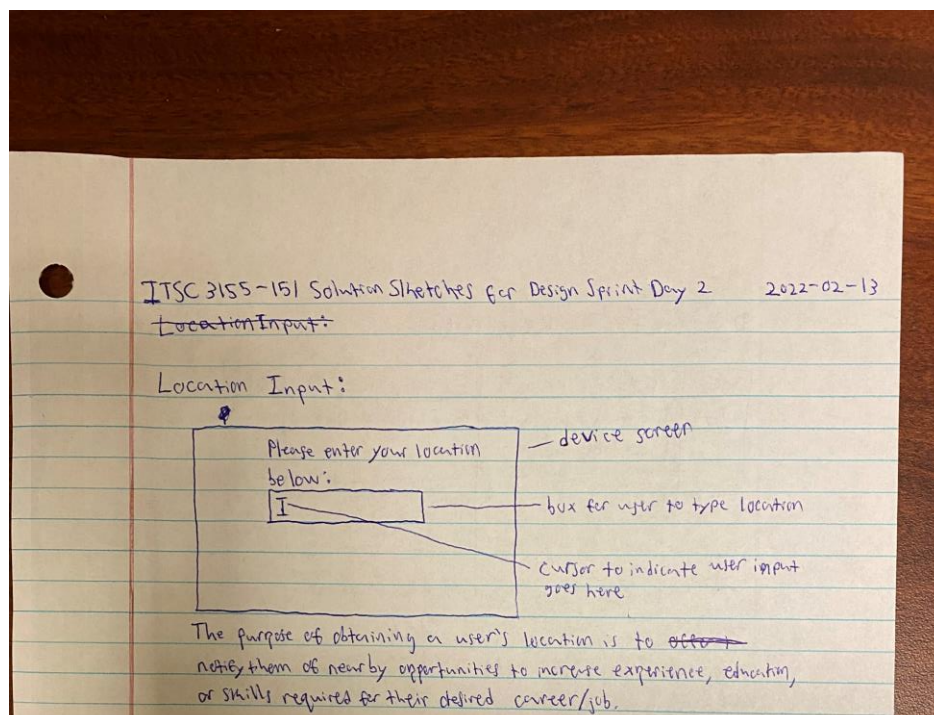 ITSC 3155-151 Solution Sketches for Design Sprint Day 2 2022-02-13
Location Input:
Location Input:
Please enter your location
below:
device screen
box for user to type location
cursor to indicate user input
goes here
The purpose of obtaining a user's location is to
notify them of nearby opportunities to increase experience, education,
or skills required for their desired career/job.